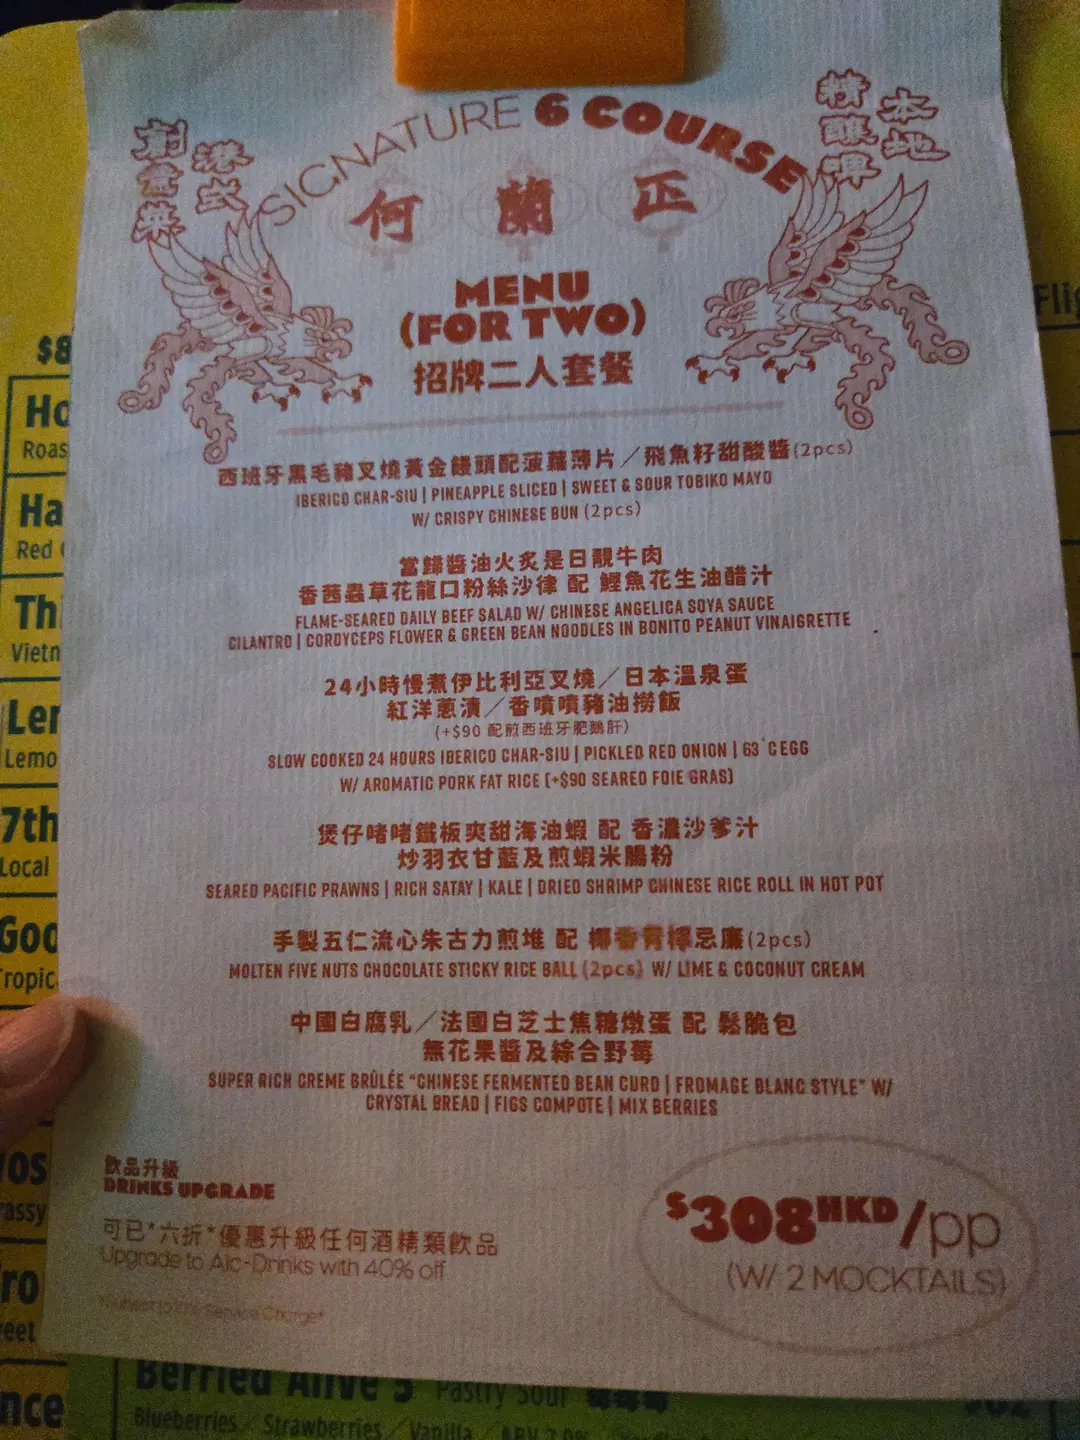 SIGNATURE 6 COURSE
創意英
港式
精釀啤
本地
何蘭正
MENU
(FOR TWO)
招牌二人套餐
西班牙黑毛豬叉燒黃金饅頭配菠蘿薄片／飛魚籽甜酸醬(2pcs)
IBERICO CHAR-SIU | PINEAPPLE SLICED | SWEET & SOUR TOBIKO MAYO
W/ CRISPY CHINESE BUN (2pcs)
當歸醬油火炙是日靚牛肉
香茜蟲草花龍口粉絲沙律 配 鰹魚花生油醋汁
FLAME-SEARED DAILY BEEF SALAD W/ CHINESE ANGELICA SOYA SAUCE
CILANTRO | CORDYCEPS FLOWER & GREEN BEAN NOODLES IN BONITO PEANUT VINAIGRETTE
24小時慢煮伊比利亞叉燒／日本溫泉蛋
紅洋蔥漬／香噴噴豬油撈飯
(+$90 配煎西班牙肥鵝肝)
SLOW COOKED 24 HOURS IBERICO CHAR-SIU | PICKLED RED ONION | 63°C EGG
W/ AROMATIC PORK FAT RICE (+$90 SEARED FOIE GRAS)
煲仔啫啫鐵板爽甜海油蝦 配 香濃沙爹汁
炒羽衣甘藍及煎蝦米腸粉
SEARED PACIFIC PRAWNS | RICH SATAY | KALE | DRIED SHRIMP CHINESE RICE ROLL IN HOT POT
手製五仁流心朱古力煎堆 配 椰香青檸忌廉(2pcs)
MOLTEN FIVE NUTS CHOCOLATE STICKY RICE BALL (2pcs) W/ LIME & COCONUT CREAM
中國白腐乳／法國白芝士焦糖燉蛋 配 鬆脆包
無花果醬及綜合野莓
SUPER RICH CREME BRÛLÉE "CHINESE FERMENTED BEAN CURD | FROMAGE BLANC STYLE" W/
CRYSTAL BREAD | FIGS COMPOTE | MIX BERRIES
飲品升級
DRINKS UPGRADE
可已*六折*優惠升級任何酒精類飲品
Upgrade to Alc-Drinks with 40% off
Service Charge*
$308HKD/pp
(W/ 2 MOCKTAILS)
$8
Ho
Roas
Ha
Red
Th
Vietn
Ler
Lemo
7th
Local
Goo
ropic
os
assy
ro
eet
nce
Flig
Berried Alive 5 Pastry Sour
Blueberries / Strawberries / Vanilla / ABV